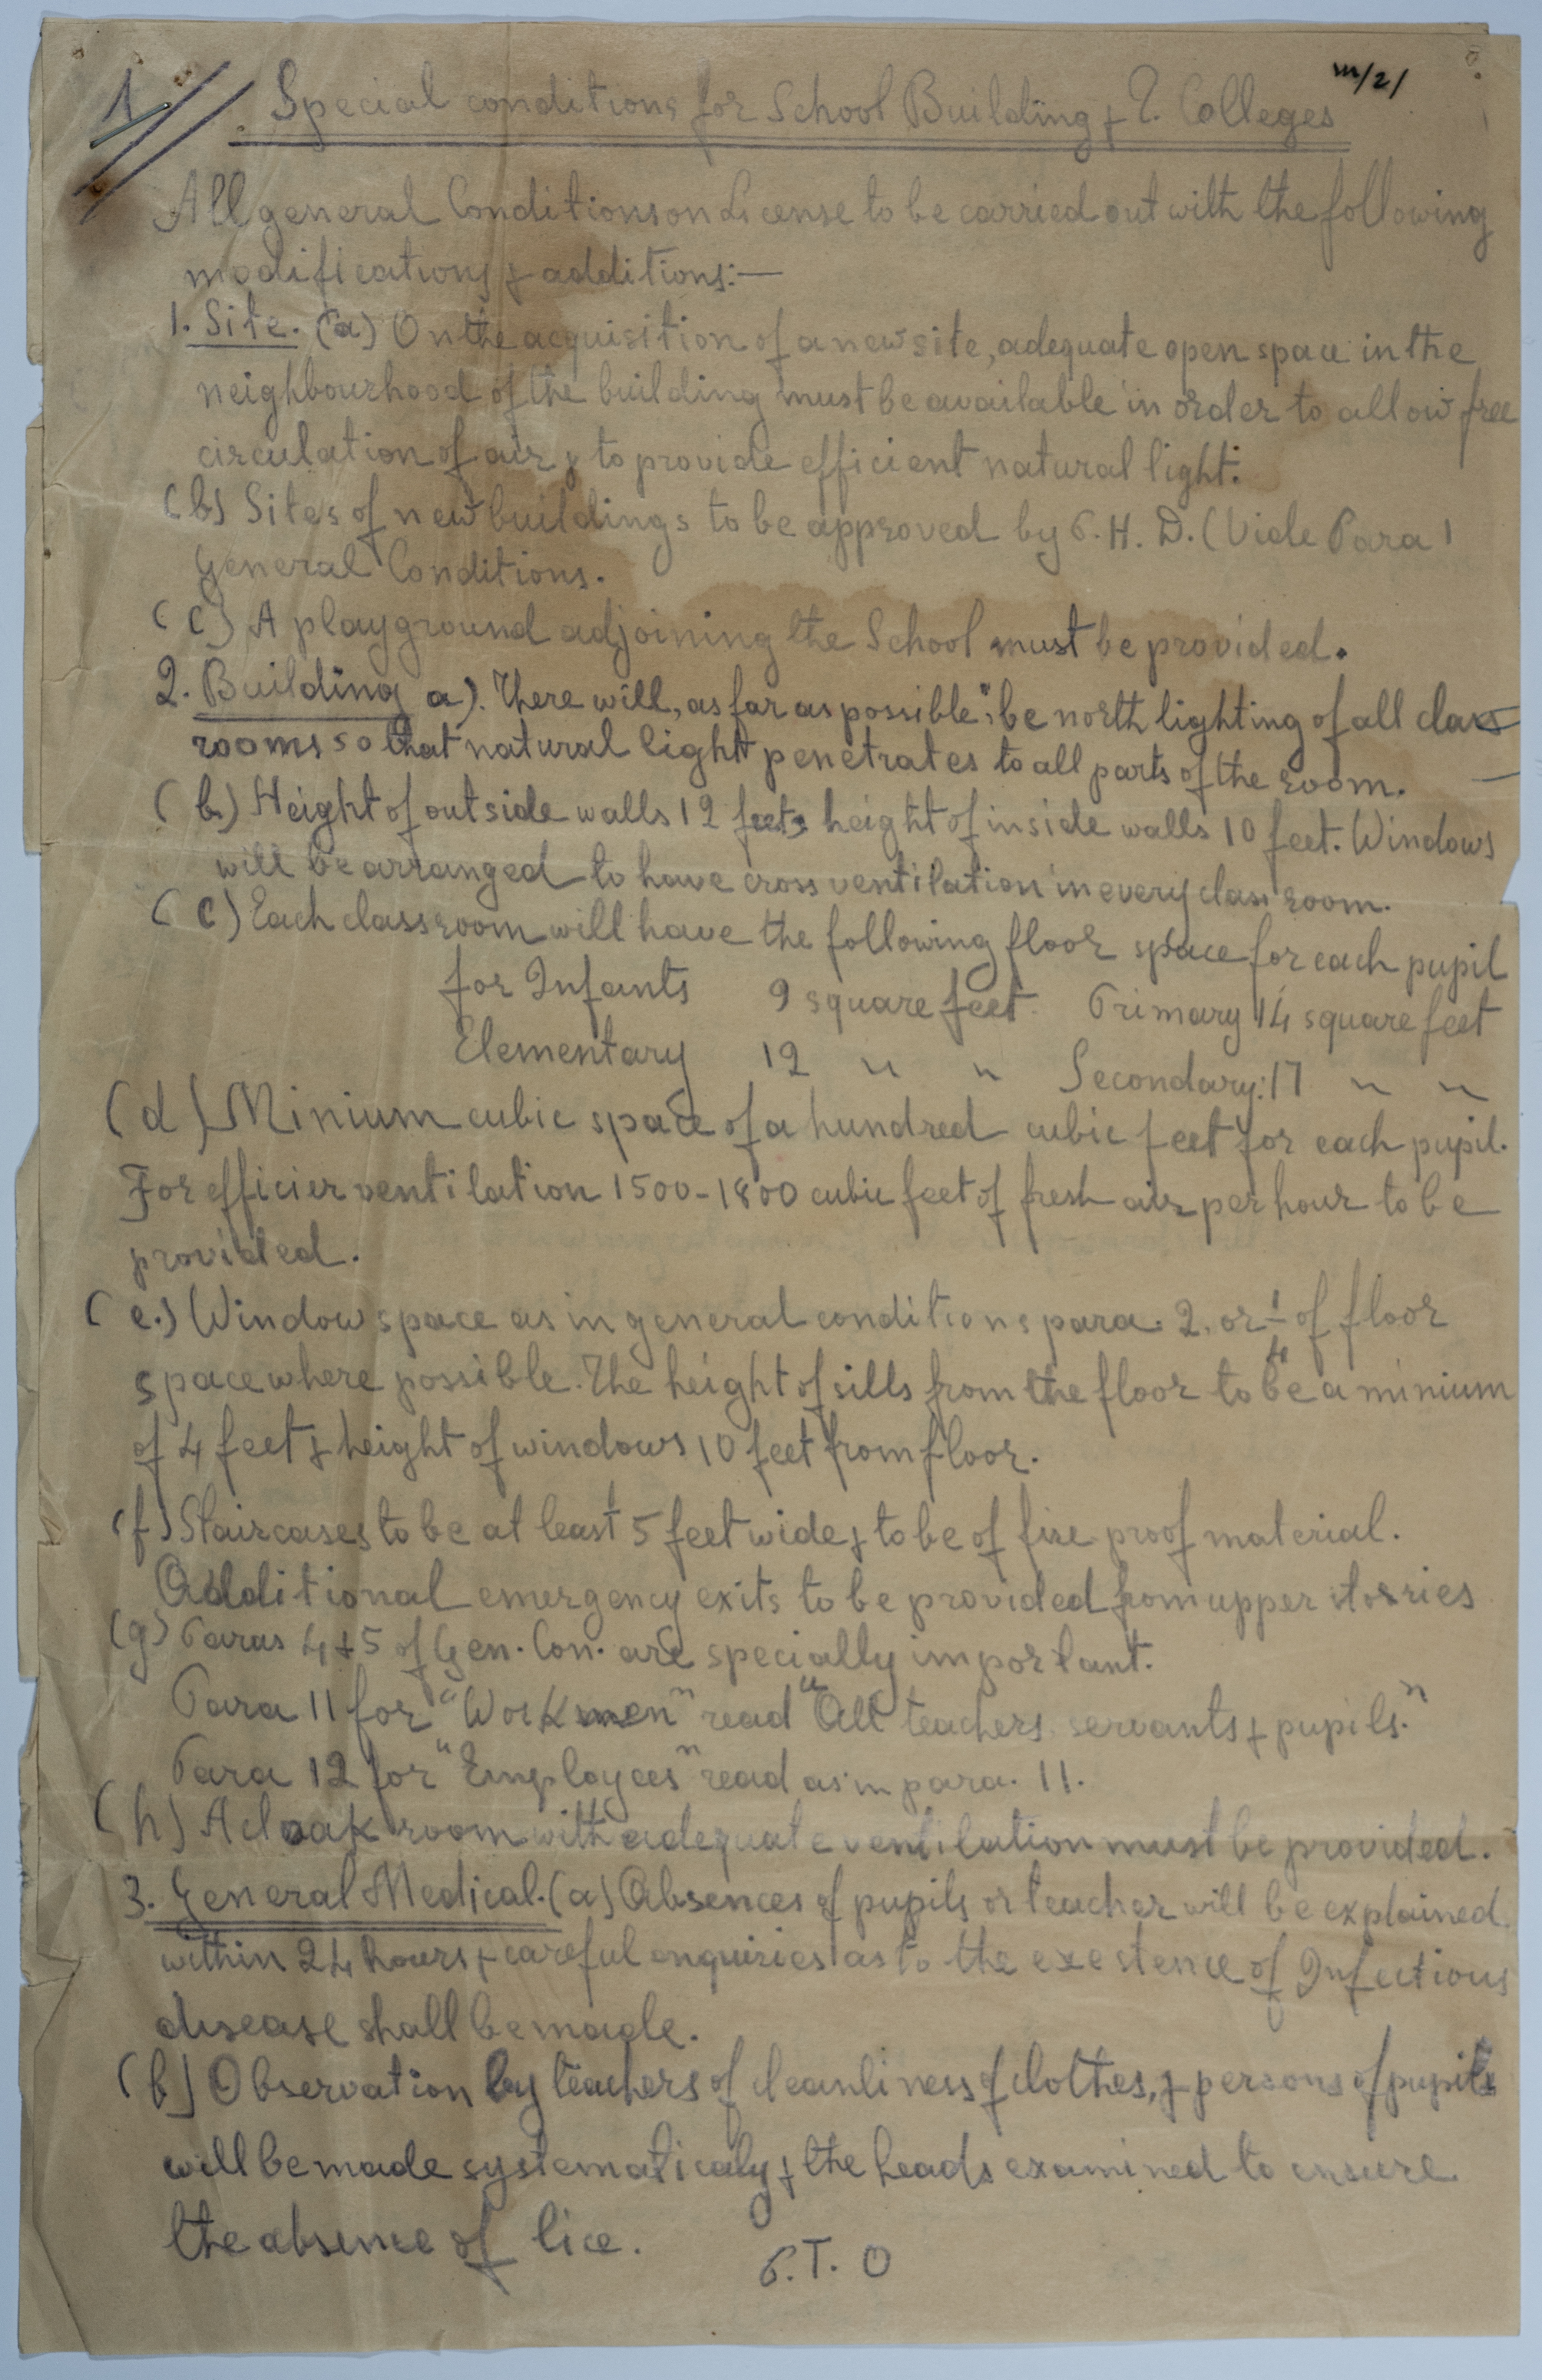 1 Special conditions for School Building & T. Colleges m/21
All general Conditions on License to be carried out with the following
modifications & additions:—
1. Site. (a) On the acquisition of a new site, adequate open space in the
neighbourhood of the building must be available in order to allow free
circulation of air & to provide efficient natural light.
(b) Sites of new buildings to be approved by P.H.D. (Vide Para 1
General Conditions.
(c) A playground adjoining the School must be provided.
2. Building a). There will, as far as possible, be north lighting of all class
rooms so that natural light penetrates to all parts of the room.
(b.) Height of outside walls 12 feet, height of inside walls 10 feet. Windows
will be arranged to have cross ventilation in every class room.
(c) Each classroom will have the following floor space for each pupil
for Infants 9 square feet. Primary 14 square feet
Elementary 12 " " Secondary: 17 " "
(d) Minium cubic space of a hundred cubic feet for each pupil.
For efficier ventilation 1500-1800 cubic feet of fresh air per hour to be
provided.
(e.) Window space as in general conditions para. 2. or 1/4 of floor
space where possible. The height of sills from the floor to be a minium
of 4 feet & height of windows 10 feet from floor.
(f) Staircases to be at least 5 feet wide & to be of fire proof material.
Additional emergency exits to be provided from upper storries
(g) Paras 4 & 5 of Gen. Con. are specially important.
Para 11 for "Workmen" read "All teachers servants & pupils."
Para 12 for "Employees" read as in para. 11.
(h) A cloak room with adequate ventilation must be provided.
3. General Medical. (a) Absences of pupils or teacher will be explained
within 24 hours & careful enquiries as to the exestence of Infectious
disease shall be made.
(b) Observation by teachers of cleanliness of clothes, & persons of pupils
will be made systematicaly & the heads examined to ensure
the absence of lice.
P.T.O